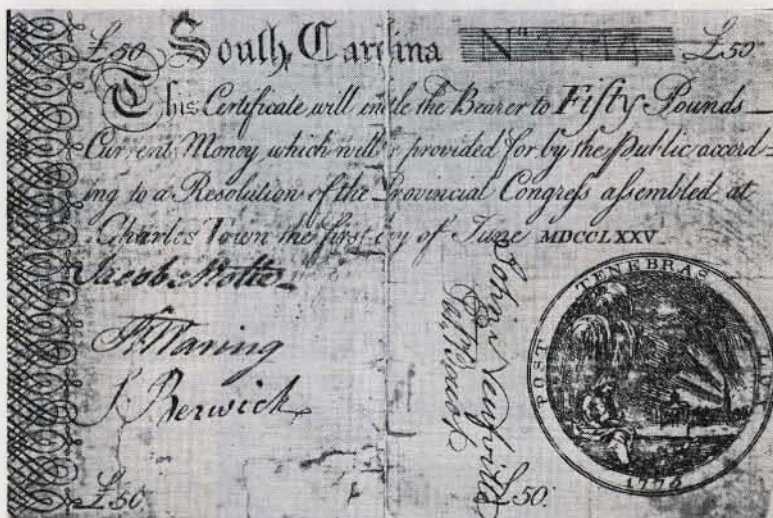 £50 South Carolina No £50
This Certificate will entitle the Bearer to Fifty Pounds
Current Money which will be provided for by the Public accord-
ing to a Resolution of the Provincial Congress assembled at
Charles Town the first day of June MDCCLXXV
Jacob Motte
Waring
J. Berwick
John Neufville
£50
£50
POST TENEBRAS LUX
1776